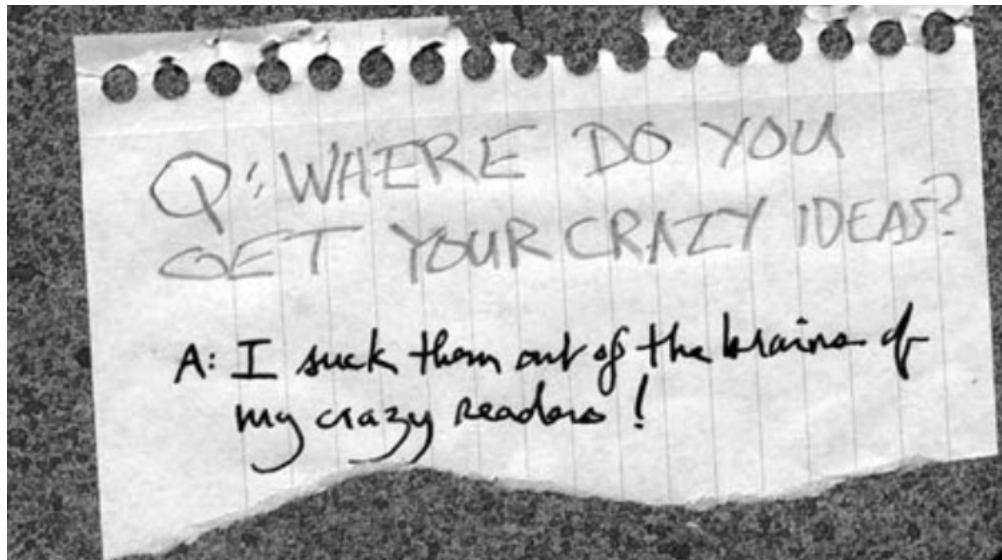 Q: WHERE DO YOU
GET YOUR CRAZY IDEAS?
A: I suck them out of the brains of
my crazy readers!